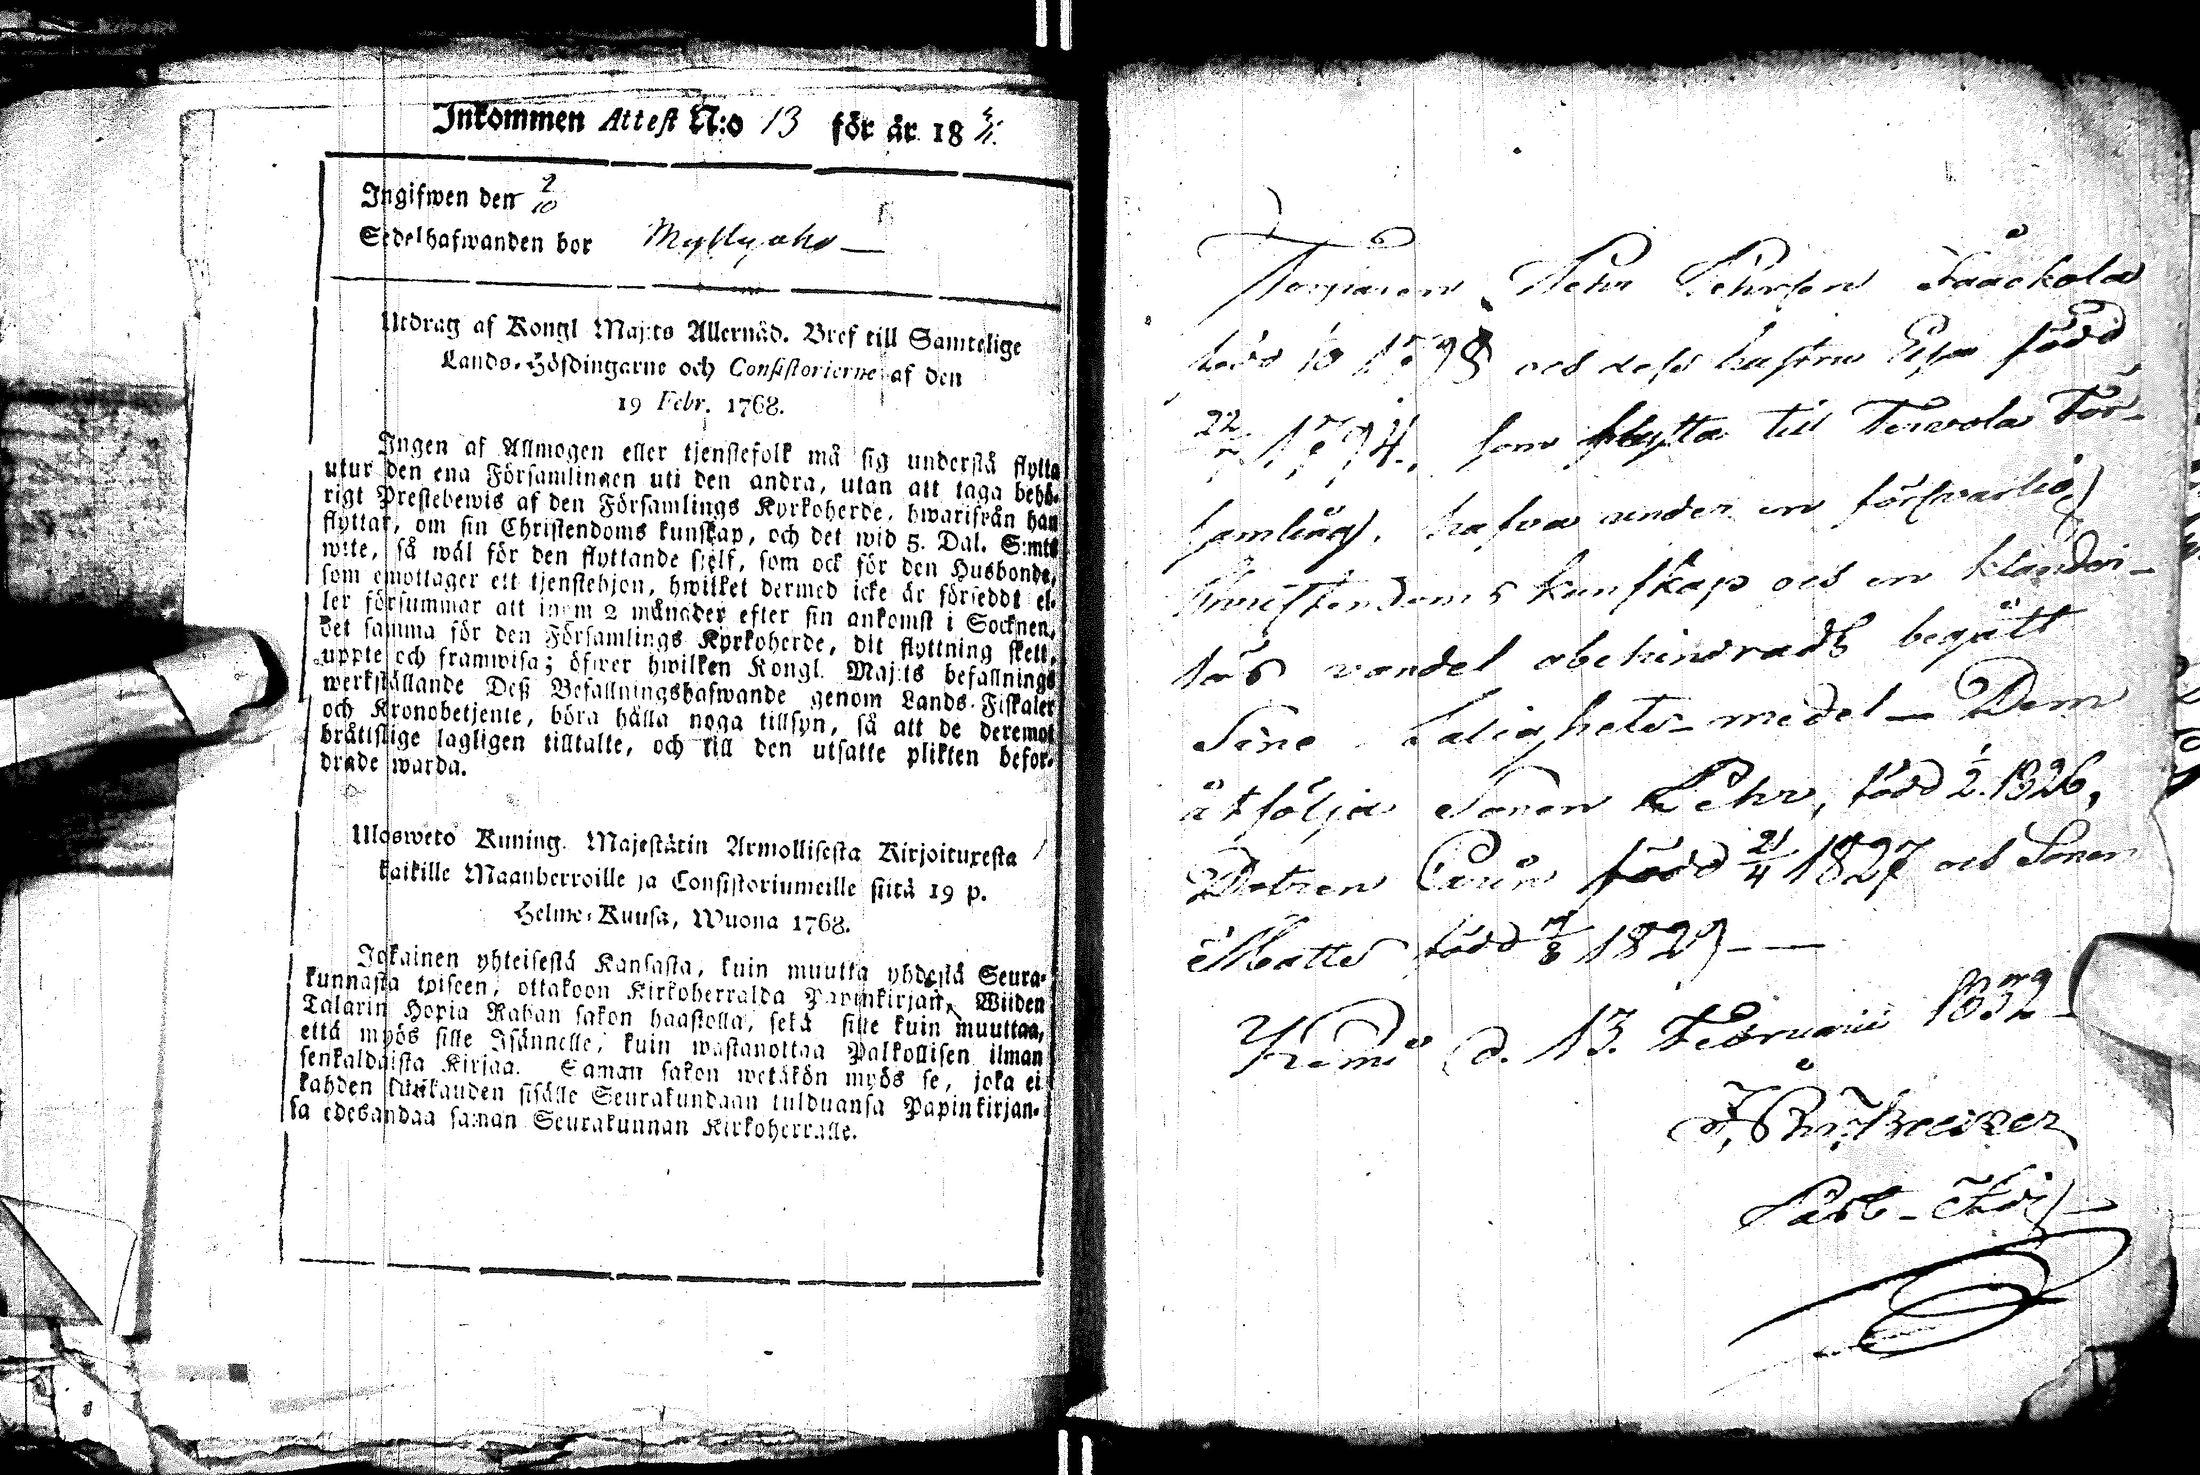 Inkommen Attest N:o 13 för år 18
Ingifwen den 2/10
Sedelhafwanden bor Myllyaho
Utdrag af Kongl Maj:ts Allernåd. Bref till Samtelige
Lands-Höfdingarne och Consistorierne af den
19 Febr. 1768.
Ingen af Allmogen eller tjenstefolk må sig understå flytta
utur den ena Församlingen uti den andra, utan att taga behö-
rigt Prestebewis af den Församlings Kyrkoherde, hwarifrån han
flyttar, om sin Christendoms kunskap, och det wid 5. Dal. S:mts
wite, så wäl för den flyttande sjelf, som ock för den Husbonde,
som emottager ett tjenstehjon, hwilket dermed icke är förseddt el-
ler försummar att inom 2 månader efter sin ankomst i Socknen,
det samma för den Församlings Kyrkoherde, dit flyttning skett,
uppte och framwisa; öfwer hwilken Kongl. Maj:ts befallnings
werkställande Deß Befallningshafwande genom Lands-Fiskaler
och Kronobetjente, böra hålla noga tillsyn, så att de deremot
bråttslige lagligen tilltalte, och till den utsatte plikten befor-
drade warda.
Ulosweto Kuning. Majestätin Armollisesta Kirjoituxesta
kaikille Maanherroille ja Consistoriumeille siitä 19 p.
Helme-Kuusa, Wuona 1768.
Jokainen yhteisestä Kansasta, kuin muutta yhdestä Seura-
kunnasta toiseen, ottakoon Kirkoherralda Papinkirjan, Wiiden
Talarin Hopia Rahan sakon haastolla, sekä sille kuin muuttaa,
että myös sille Isännelle, kuin wastanottaa Palkollisen ilman
senkaldaista Kirjaa. Saman sakon wetäkön myös se, joka ei
kahden kuukauden sisälle Seurakundaan tulduansa Papinkirjan-
sa edesandaa saman Seurakunnan Kirkoherralle.
Torparen Pehr Pehrson Jaackola
född 1798 och dess hustru Elsa född
22/7 1794, som flytta till Tervola För-
samling, hafva under en försvarlig
Christendoms kunskap och en klander-
lös vandel obehindradt begått
Sine Salighets-medel — Dem
åtfölja Sonen Pehr, född 1/2 1826,
Dotren Carin född 21/4 1827 och Sonen
Matts född 7/8 1829 — —
Kemi d. 13. Februarii 1832